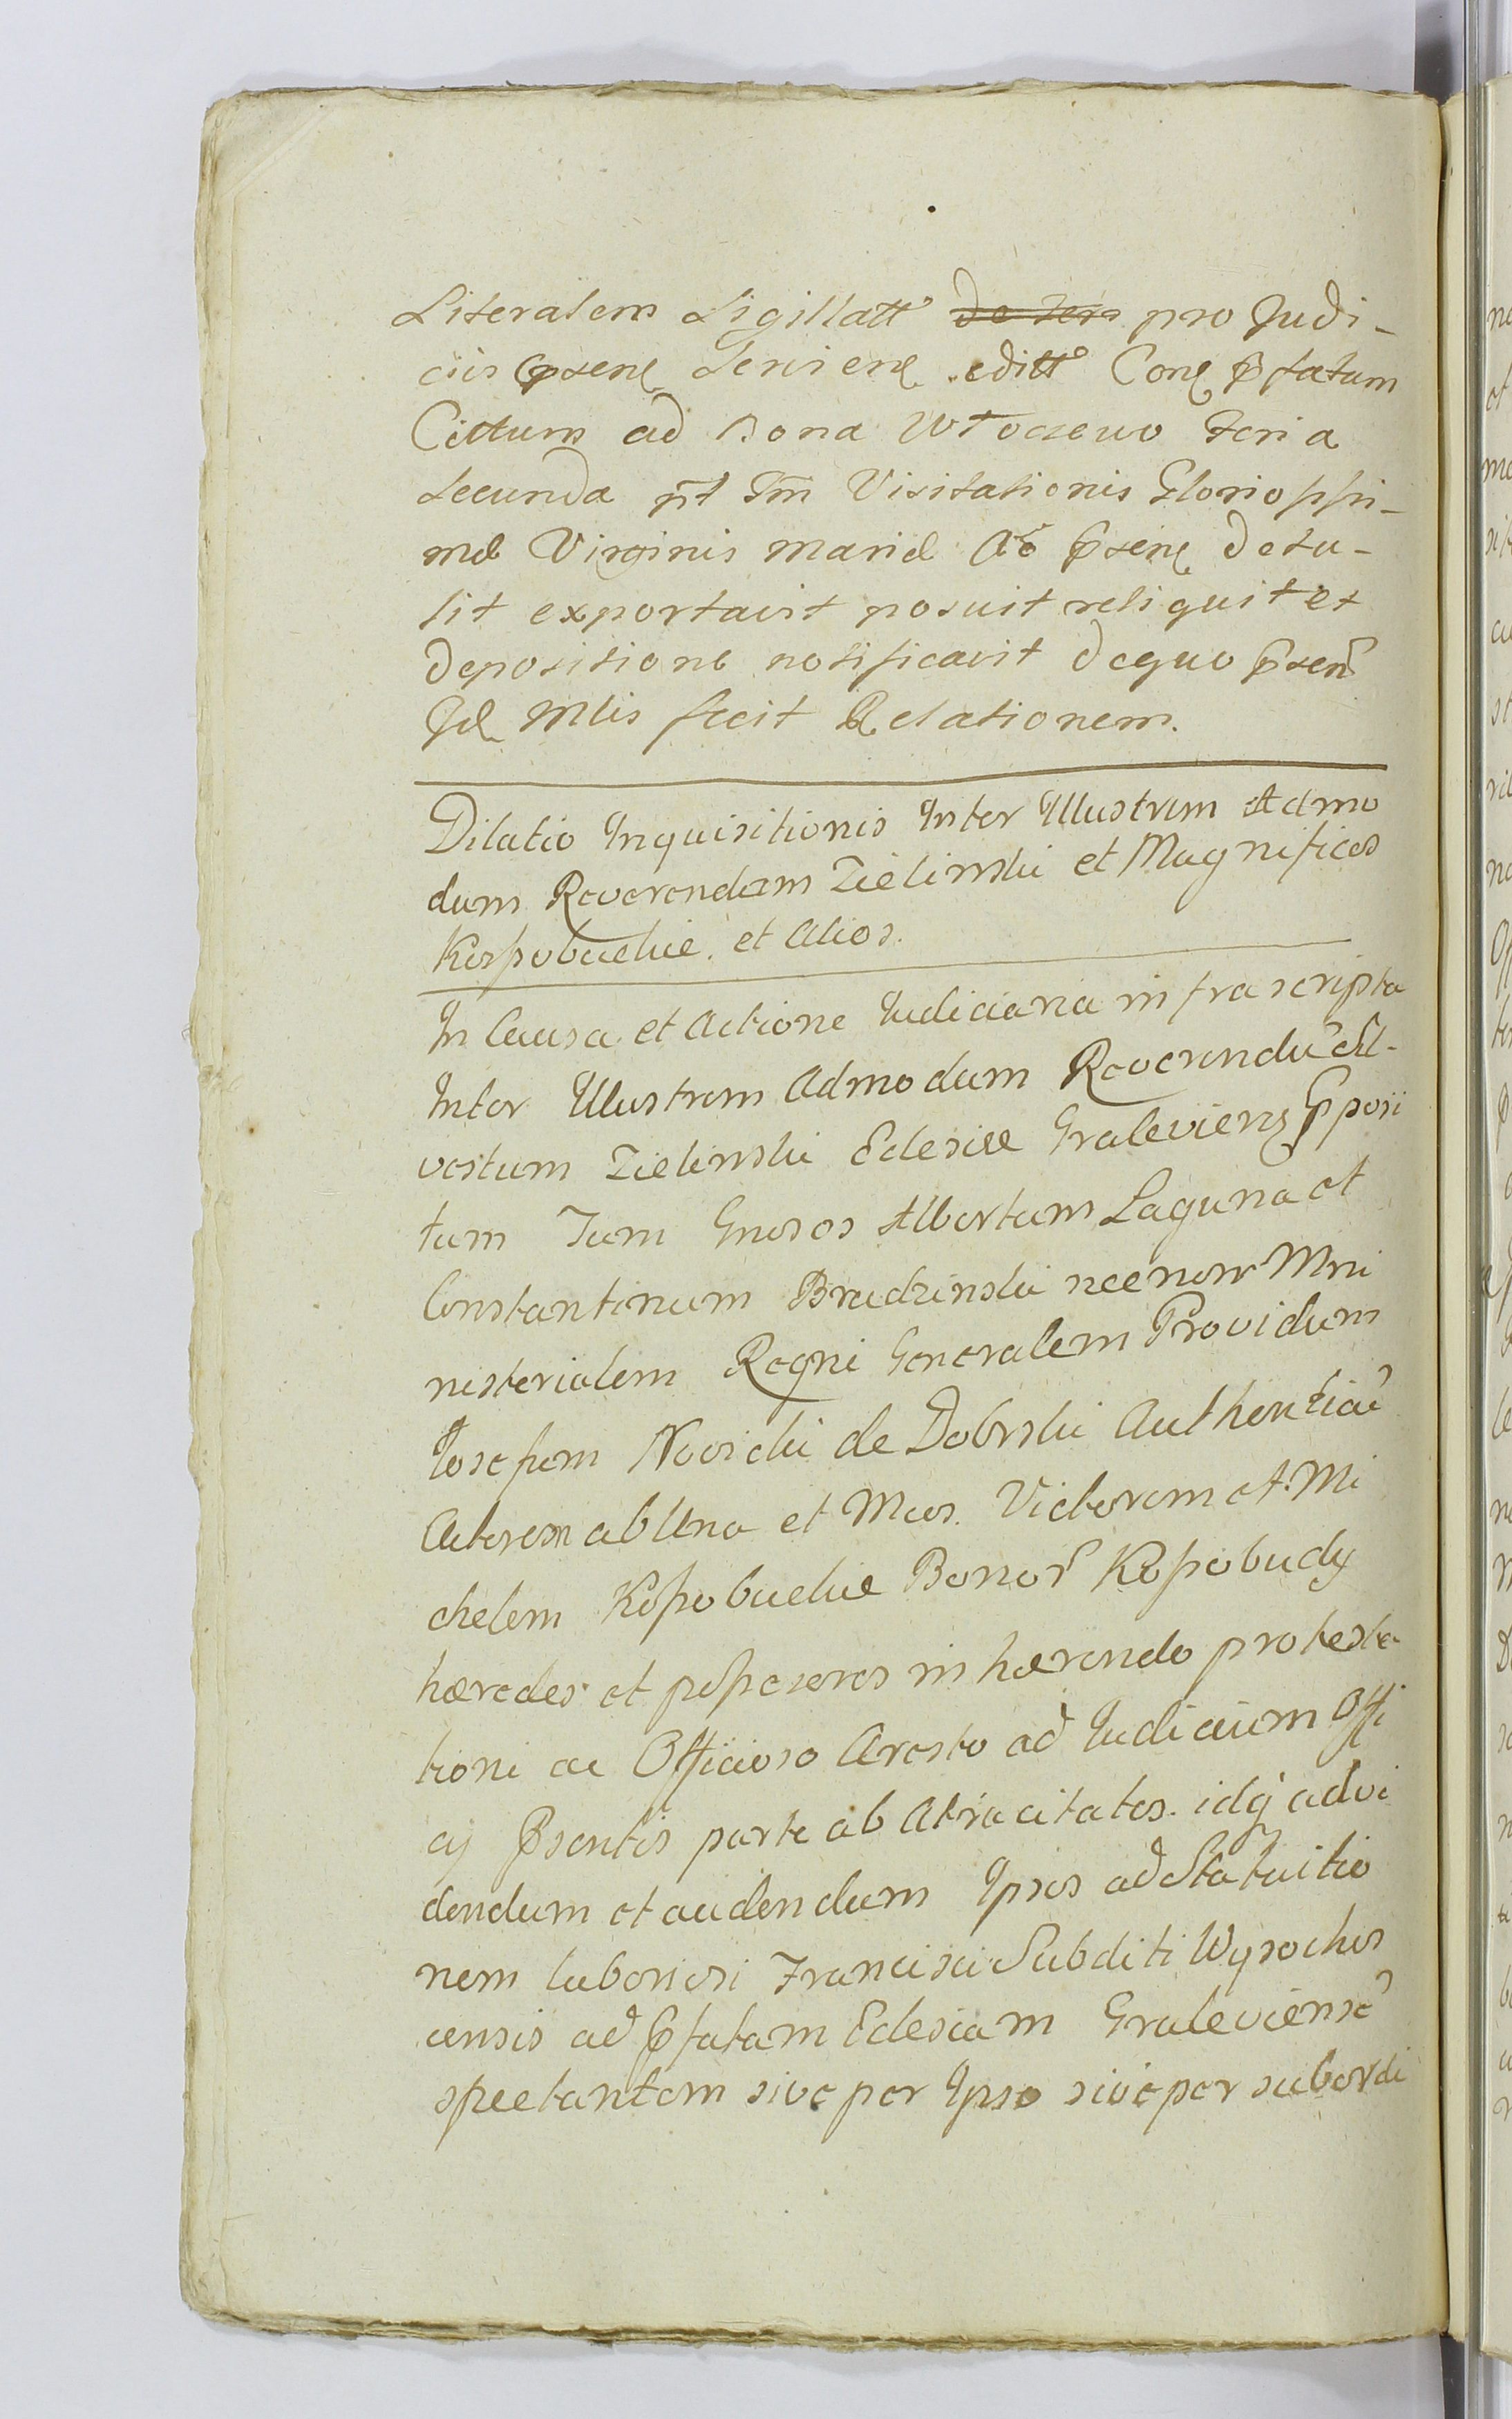 Literalem Sigillatt͠ de ters pro Judi-
ciis pnsens Terrens editt͠ Cons p̃fatum
Cittum ad Bona Włoczewo Feria
Secunda pt͠ Fm̃ Visitationis Gloriossi-
mæ Virginis mariæ Aõ p̃sens detu-
lit exportavit posuit reliquit et
depositione notificavit dequo p̃sen͠
Jd Mlis fecit Relationem.
Dilatio Inquisitionis Inter Illustrem Admo
dum Reverendum Zielinski et Magnificos
Kossobuckie. et Alios.
In Causa et Actione Iudiciaria infrascripta
Inter Illustrem Admodum Reverendu͠ Sil-
vestum Zielinski Eclesiæ Gralewiens P̃posi
tum Tum Gnosos Albertum Laguna et
Constantinum Brudzinski necnon Mini
nisterialem Regni Generalem Providum
Iosefem Novicki de Dobrski Authentiau͠
Actorem ab Una et Mcos. Victorem et Mi
chelem Kossobuckie Bonor͠ Kossobudy
hæredes et possesores in hærendo protesta
tioni ac Officioso Aresto ad Iudicium Offi
cij P̃sentis parte ab Atracitatos. idq͠ advi
dendum et audendum Ipsos ad Statuitio
nem laboriosi Francisci Subditi Wysochos
censis ad P̃fatam Eclesiam Gralewiense͠
spectantem sive per Ipso sive per subordi